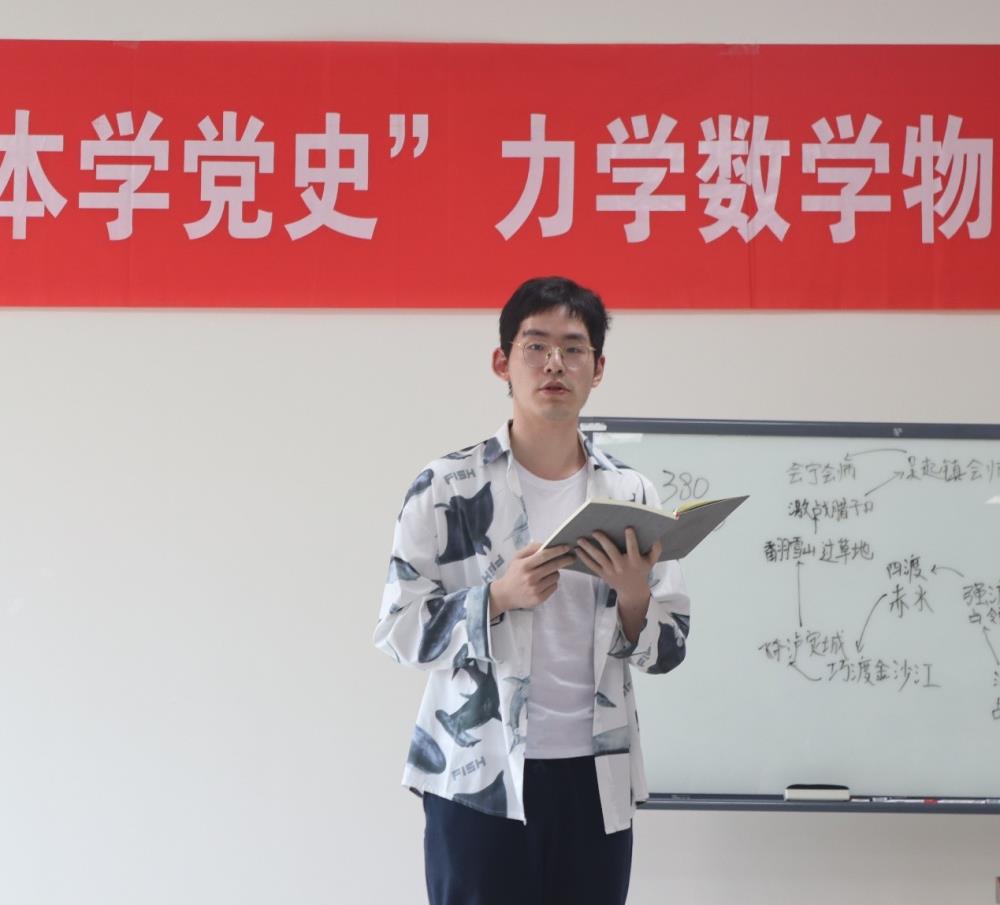 本学党史” 力学数学物
FISH
FISH
FISH
380
会宁会师
吴起镇会师
激战腊子口
翻雪山 过草地
四渡
赤水
强渡
飞夺泸定城
巧渡金沙江